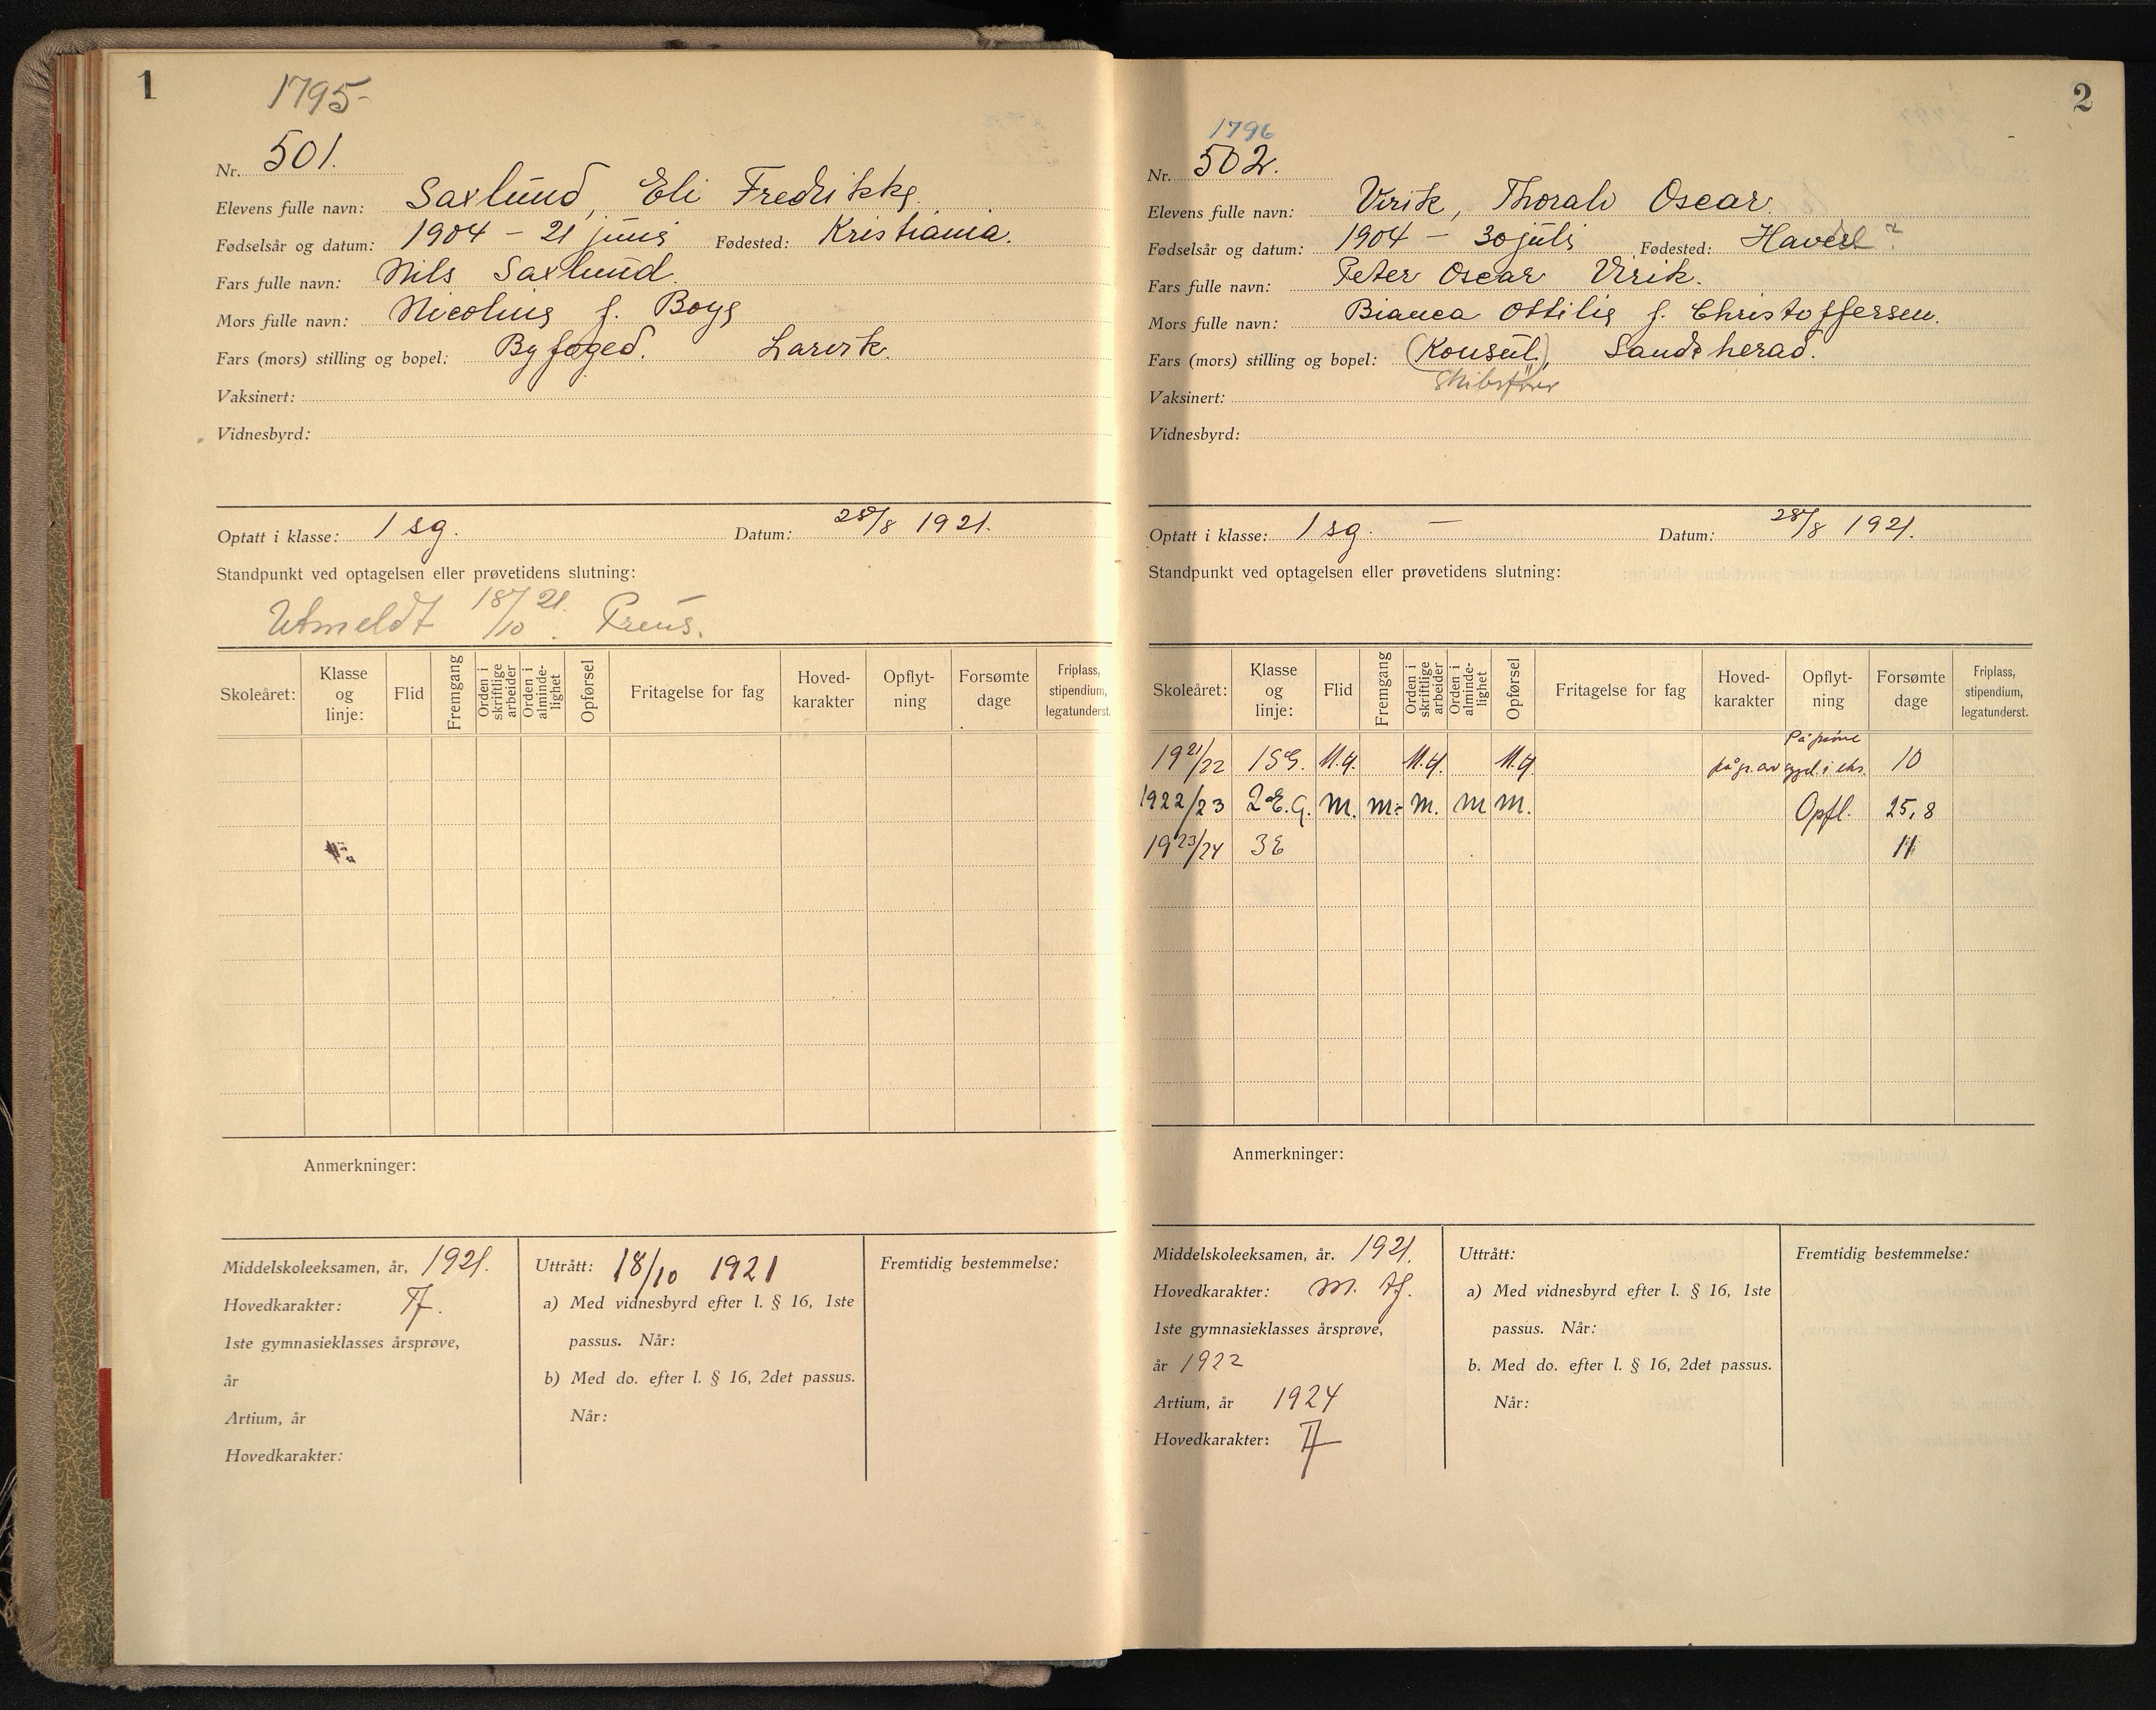 1
1795
Nr. 501.
Elevens fulle navn: Saxlund, Eli Fredrikke
Fødselsår og datum: 1904 – 21 juni Fødested: Kristiania.
Fars fulle navn: Nils Saxlund.
Mors fulle navn: Nicoline f. Boye
Fars (mors) stilling og bopel: Byfoged. Larvik.
Vaksinert:
Vidnesbyrd:
Optatt i klasse: 1 sg. Datum: 28/8 1921.
Standpunkt ved optagelsen eller prøvetidens slutning:
Utmeldt 18/10 21. Preus.
Skoleåret: Klasse og linje: Flid Fremgang Orden i skriftlige arbeider Orden i alminde-lighet Opførsel Fritagelse for fag Hoved-karakter Opflyt-ning Forsømte dage Friplass, stipendium, legatunderst.
Anmerkninger:
Middelskoleeksamen, år, 1921.
Hovedkarakter: Tf.
1ste gymnasieklasses årsprøve,
år
Artium, år
Hovedkarakter:
Uttrått: 18/10 1921
a) Med vidnesbyrd efter l. § 16, 1ste
passus. Når:
b) Med do. efter l. § 16, 2det passus.
Når:
Fremtidig bestemmelse:
2
1796
Nr. 502.
Elevens fulle navn: Virik, Thoralv Oscar.
Fødselsår og datum: 1904 – 30 juli Fødested:
Fars fulle navn: Peter Oscar Virik.
Mors fulle navn: Bianca Ottilie f. Christoffersen.
Fars (mors) stilling og bopel: (Konsul), Sandeherad.
Skibsfører
Vaksinert:
Vidnesbyrd:
Optatt i klasse: 1 sg. — Datum: 28/8 1921.
Standpunkt ved optagelsen eller prøvetidens slutning:
Skoleåret: Klasse og linje: Flid Fremgang Orden i skriftlige arbeider Orden i alminde-lighet Opførsel Fritagelse for fag Hoved-karakter Opflyt-ning Forsømte dage Friplass, stipendium, legatunderst.
På prøve
19 21/22 1SG. M.g. M.g. M.g. på gr. av 10
1922/23 2 E.G. M. M.- M. M M. Opfl. 25,8
19 23/24 3E 11
Anmerkninger:
Middelskoleeksamen, år. 1921.
Hovedkarakter: M. tf.
1ste gymnasieklasses årsprøve,
år 1922
Artium, år 1924
Hovedkarakter: Tf
Uttrått:
a) Med vidnesbyrd efter l. § 16, 1ste
passus. Når:
b. Med do. efter l. § 16, 2det passus.
Når:
Fremtidig bestemmelse: